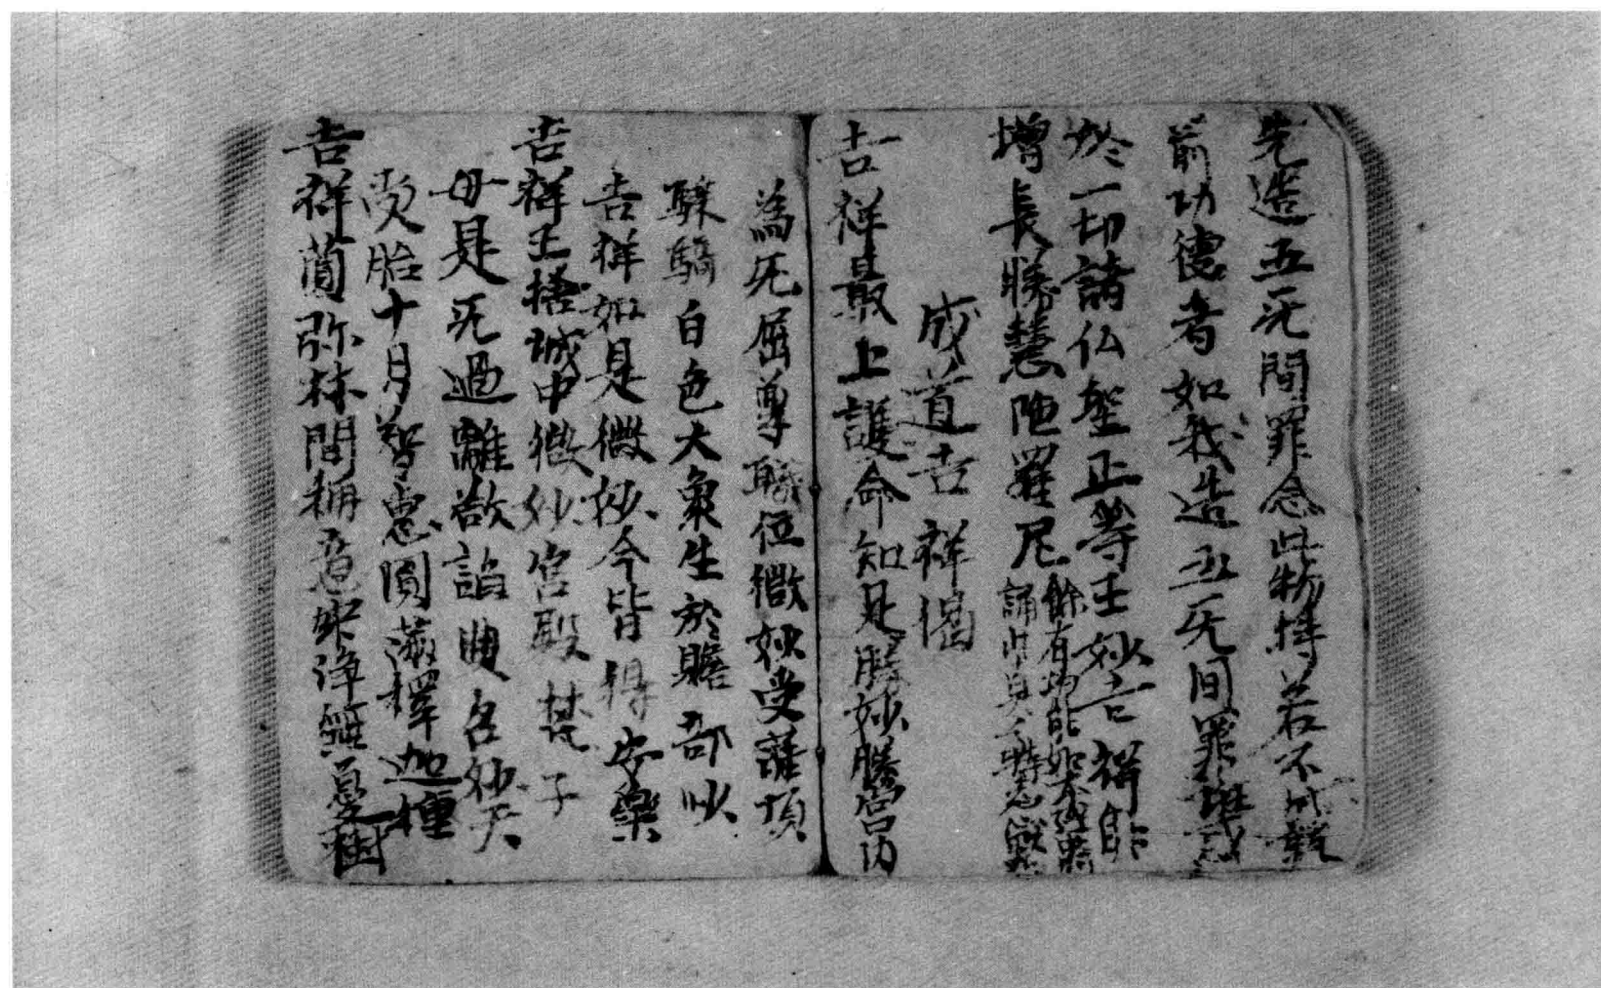 先造五无間罪念此物持若不成就
前功德者如我造五无間罪
於一切諸仏聖正等王妙吉祥
增長勝慧陁羅尼
餘有功能如本
誦此
成道吉祥偈
吉祥最上護命知足勝妙勝宮内
為无屈尊軄位微妙受灌頂
騍驕白色大象生於贍部
吉祥如是微妙今皆得安樂
吉祥王捨城中微妙宮殿梵子
母是无過離諂曲名妙天
受胎十月智恵圓滿釋迦種
吉祥蘭弥林間稱意無憂樹